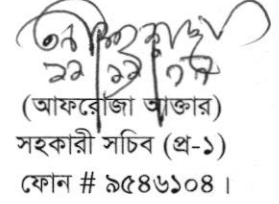 (আফরোজা আক্তার)
সহকারী সচিব (প্র-১)
ফোন # ৯৫৪৬১০৪।